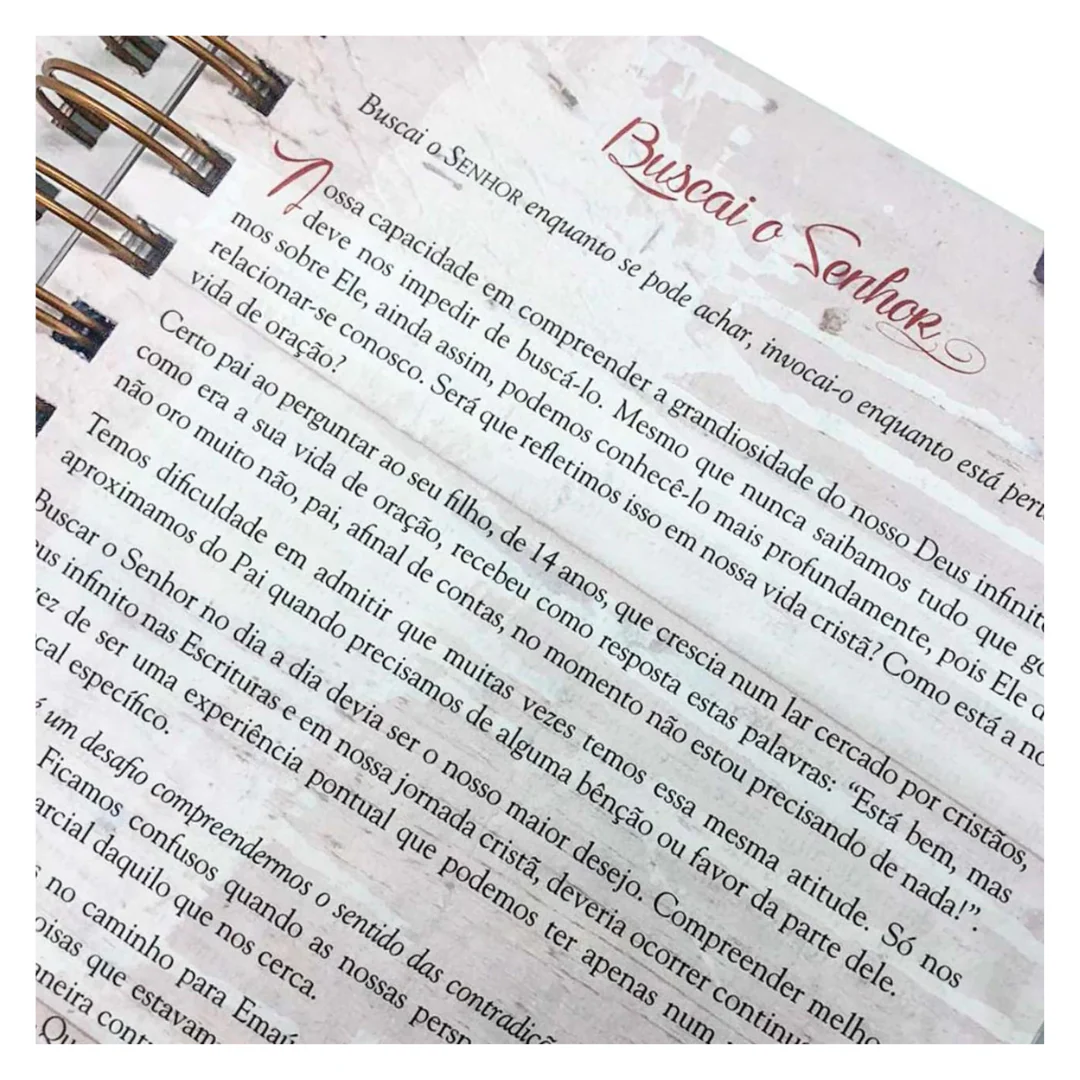 Buscai o Senhor
Buscai o SENHOR enquanto se pode achar, invocai-o enquanto está
Nossa capacidade em compreender a grandiosidade do nosso Deus
deve nos impedir de buscá-lo. Mesmo que nunca saibamos tudo que
mos sobre Ele, ainda assim, podemos conhecê-lo mais profundamente, pois Ele
relacionar-se conosco. Será que refletimos isso em nossa vida cristã? Como está a
vida de oração?
Certo pai ao perguntar ao seu filho, de 14 anos, que crescia num lar cercado por cristãos,
como era a sua vida de oração, recebeu como resposta estas palavras: “Está bem, mas
não oro muito não, pai, afinal de contas, no momento não estou precisando de nada!”.
Temos dificuldade em admitir que muitas vezes temos essa mesma atitude. Só nos
aproximamos do Pai quando precisamos de alguma bênção ou favor da parte dele.
Buscar o Senhor no dia a dia devia ser o nosso maior desejo. Compreender
infinito nas Escrituras e em nossa jornada cristã, deveria ocorrer
de ser uma experiência pontual que podemos ter apenas num
específico.
é um desafio compreendermos o sentido das
Ficamos confusos quando as nossas
daquilo que nos cerca.
no caminho para
que estavam